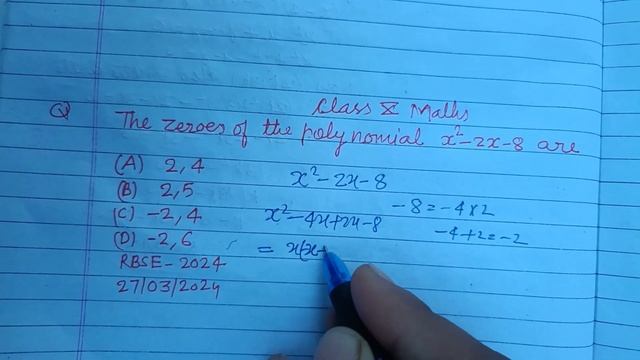 Class X Maths
Q The zeroes of the polynomial x²-2x-8 are
(A) 2, 4
(B) 2, 5
(C) -2, 4
(D) -2, 6
RBSE-2024
27/03/2024
x²-2x-8
x²-4x+2x-8
= x(x-
-8=-4×2
-4+2=-2